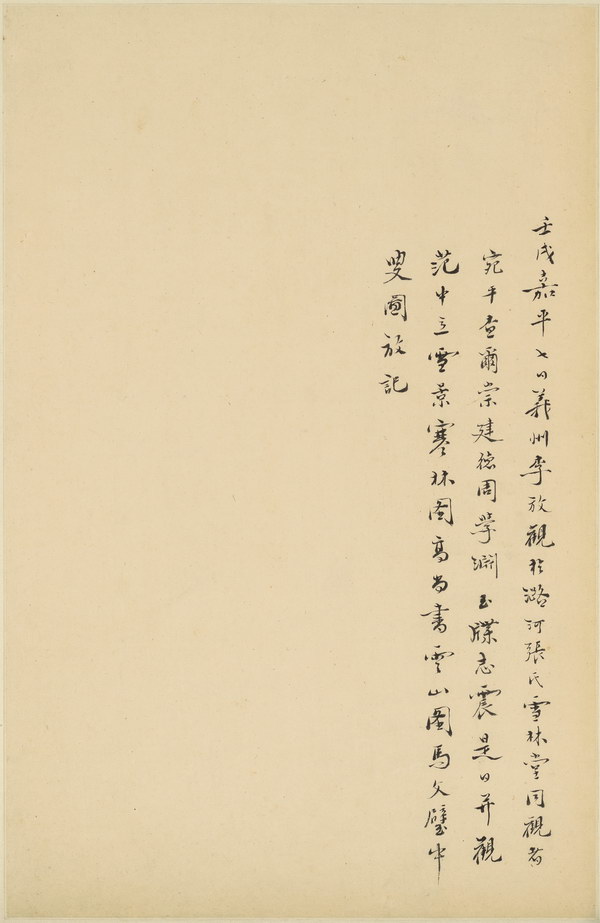 壬戌嘉平七日義州李放觀於潞河張氏雪林堂同觀者
宛平查爾崇建德周學淵玉牒志震是日并觀
范中立雪景寒林圖高尚書雲山圖馬文璧中
叟圖放記